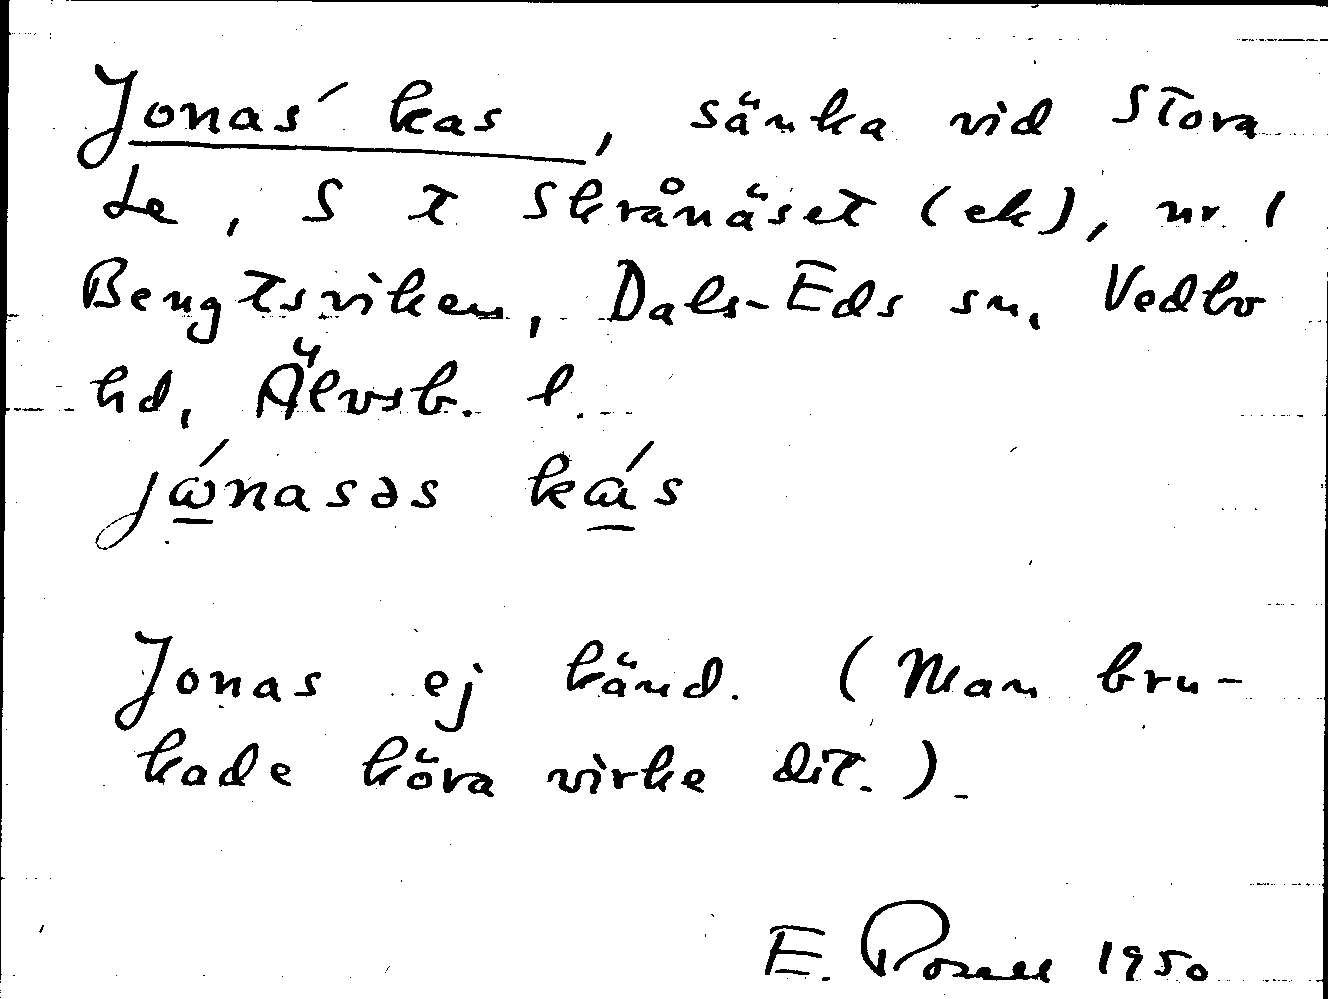 Jonas' kas, sänka vid Stora
Le, S t Skrånäset (ek), nr 1
Bengtsviken, Dals-Eds sn, Vedbo
hd, Älvsb. l.
jώnasəs kás
Jonas ej känd. (Man bru-
kade köra virke dit.)
E. 1950